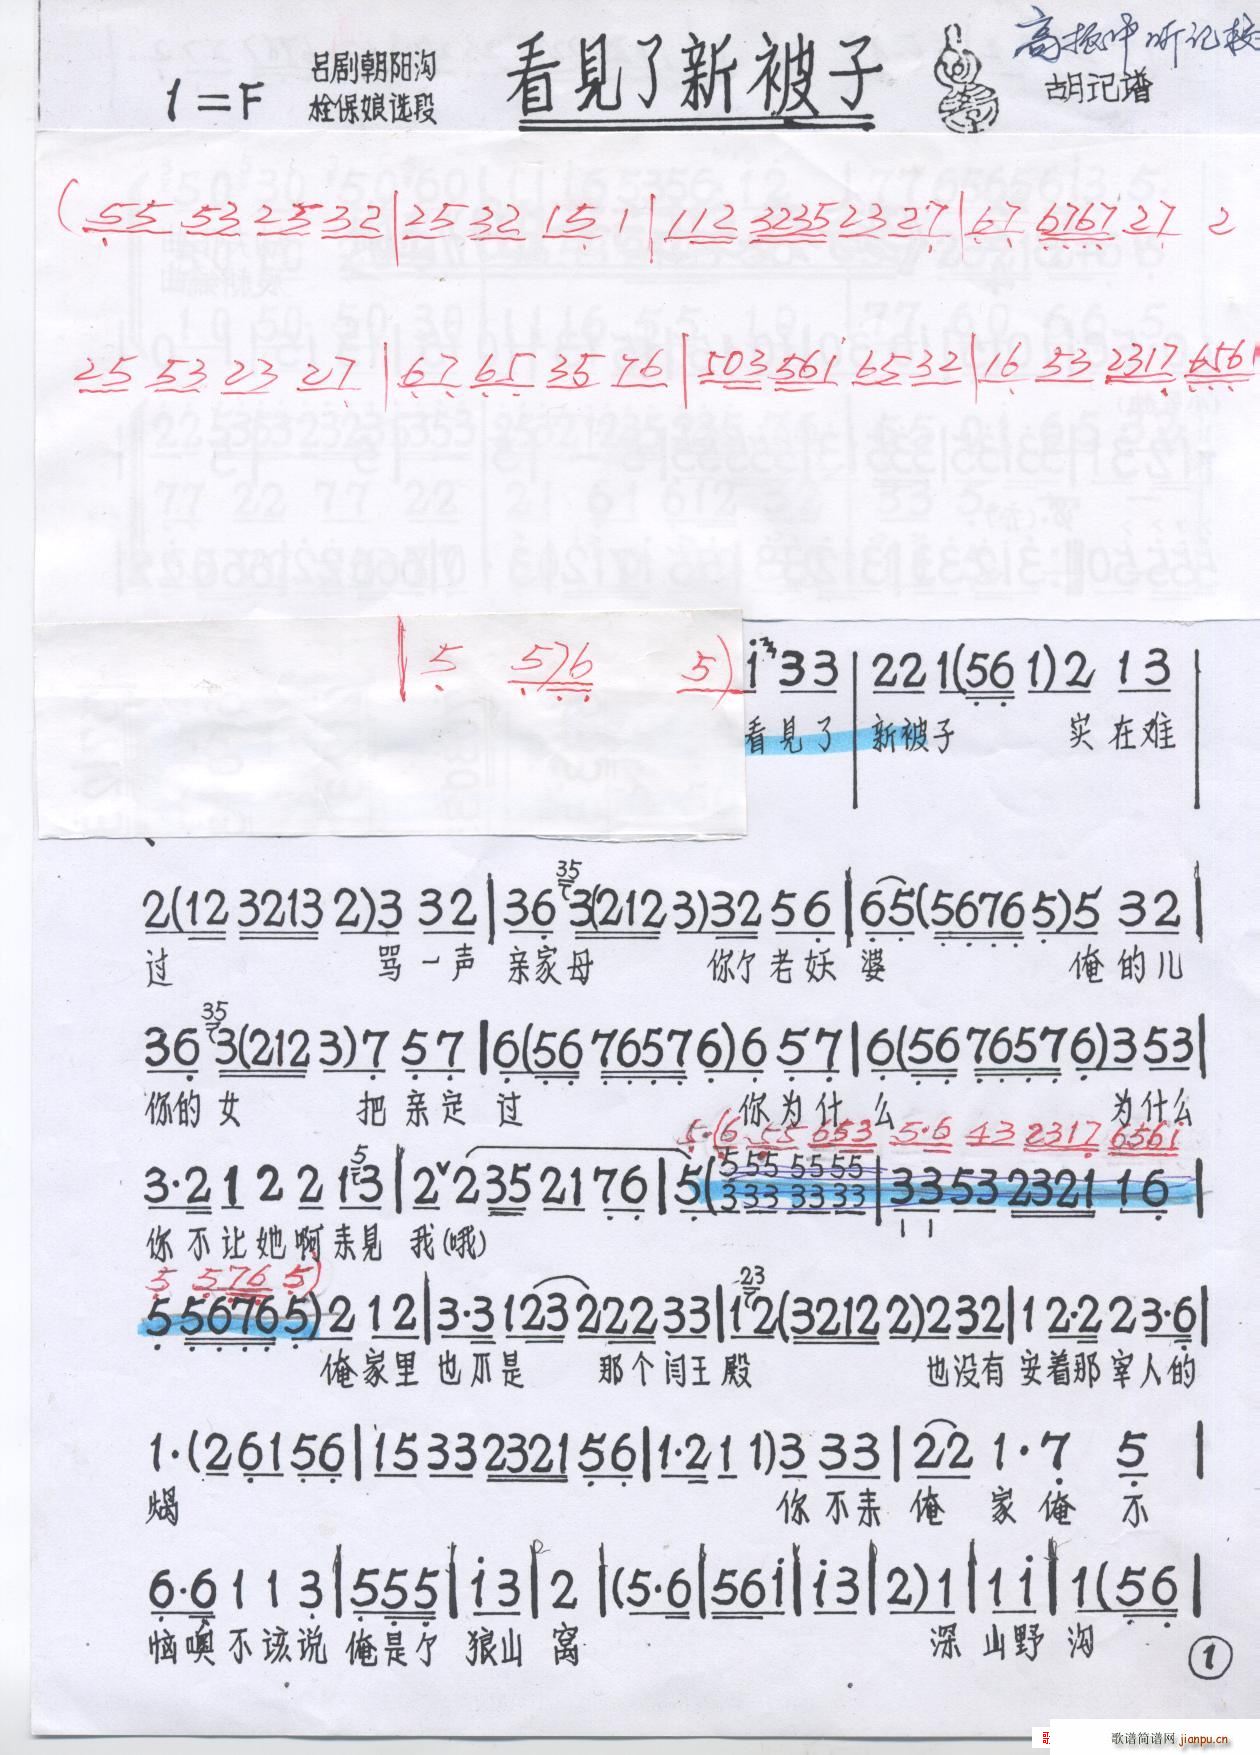 高振中听记校
看見了新被子
吕剧朝阳沟
栓保娘选段
1=F
胡记谱
(55 53 25 32|25 32 15 1|112 3235 23 27|67 6767 27 2
25 53 23 27|67 65 35 76|503 561 65 32|16 53 2317 6561
|5 576 5)
i 33|221(561)2 13
看見了 新被子 实在难
2(12 3213 2)3 32|36 35 3(212 3)32 56|65(5676 5)5 32|
过 骂一声 亲家母 你个老妖婆 俺的儿
36 35 3(212 3)7 57|6(56 7657 6)6 57|6(56 7657 6)3 53|
你的女 把亲定过 你为什么 为什么
5·(6 55 653 5·6 43 2317 6561
3·2 1 2 2 5 13|2 2 35 21 76|5(5 55 55 55
3 33 33 33|33 53 2321 16|
你不让她啊来見我(哦)
5 576 5)
5 56765)2 12|3·3 1232 22 33|23 12(3212 2)2 32|1 2·2 2 3·6|
俺家里也不是 那个闫王殿 也没有安着那宰人的
1·(26156|15 33 2321 56|1·21 1)3 33|22 1·7 5|
锅 你不来俺家俺不
6·6 1 1 3|555|i3|2|(5·6|56i|i3|2)1|1i|1(56|
恼噢不该说俺是个狼山窝 深山野沟
1
歌谱简谱网
jianpu.cn